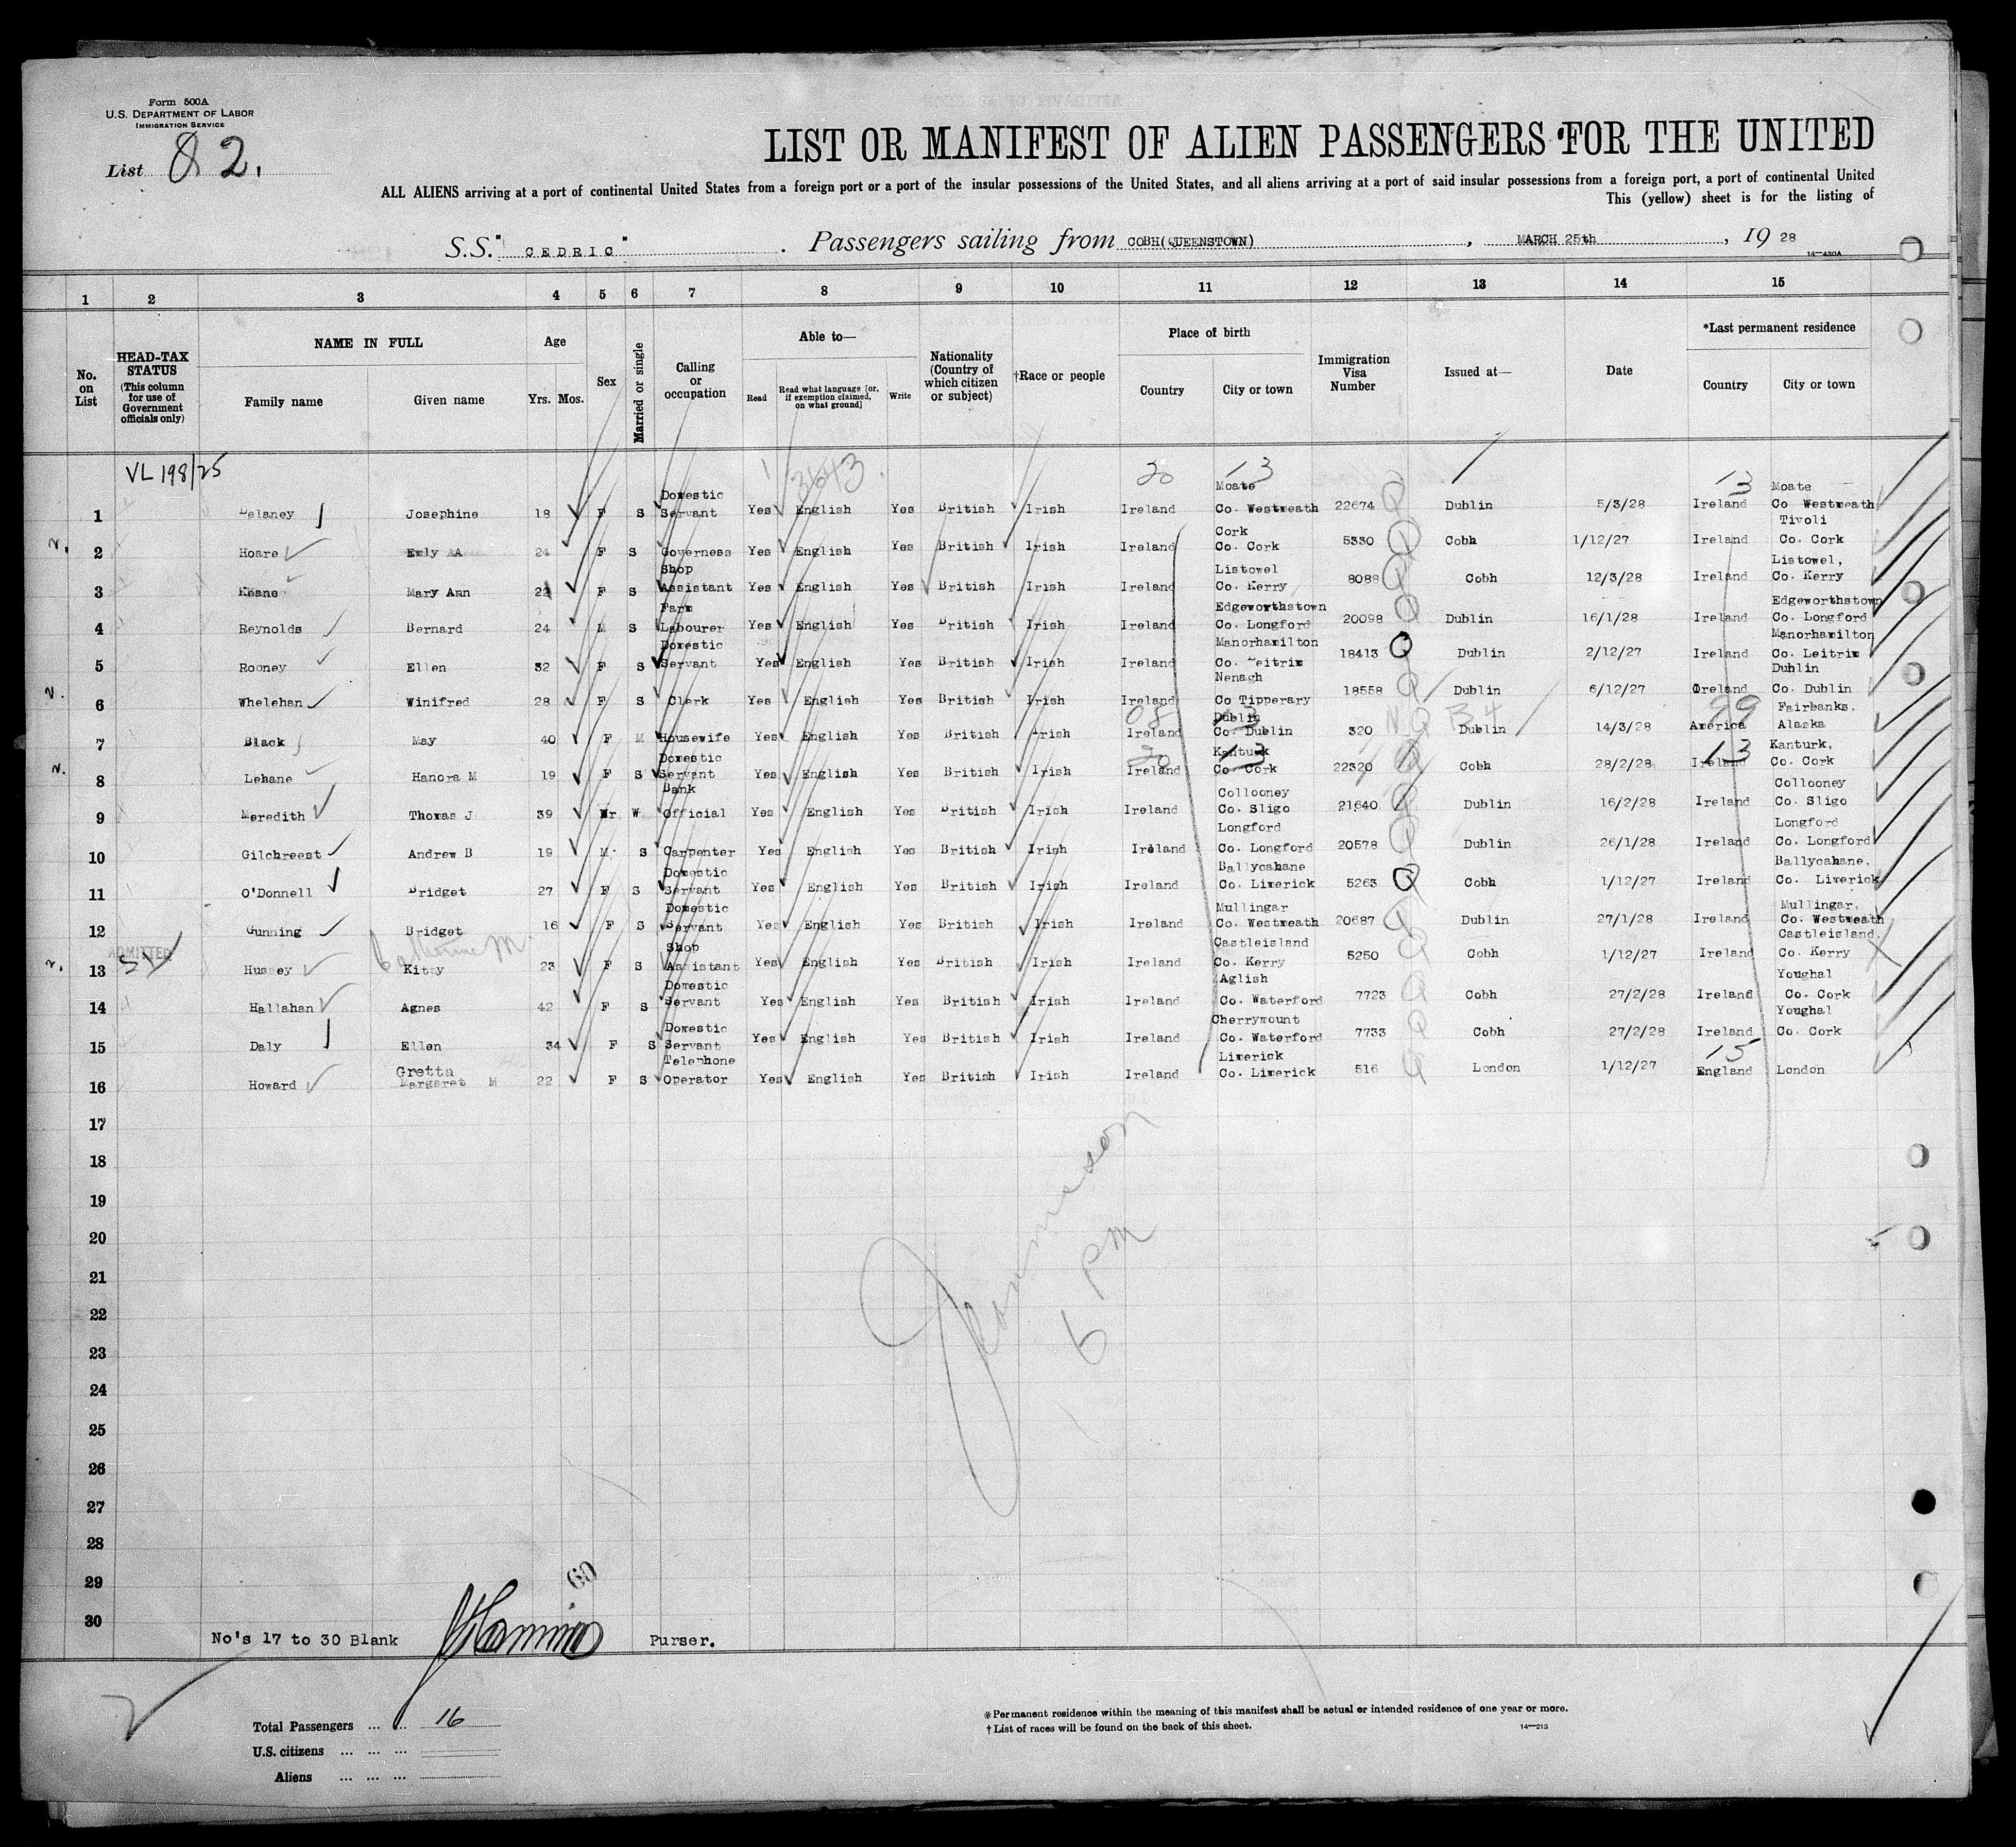 Form 500A
U.S. DEPARTMENT OF LABOR
IMMIGRATION SERVICE
List 82.
LIST OR MANIFEST OF ALIEN PASSENGERS FOR THE UNITED
ALL ALIENS arriving at a port of continental United States from a foreign port or a port of the insular possessions of the United States, and all aliens arriving at a port of said insular possessions from a foreign port, a port of continental United
This (yellow) sheet is for the listing of
S.S. "CEDRIC". Passengers sailing from COBH(QUEENSTOWN), MARCH 25th, 19 28
14—430A
1 2 3 4 5 6 7 8 9 10 11 12 13 14 15
No. on List
HEAD-TAX STATUS (This column for use of Government officials only)
NAME IN FULL
Family name Given name
Age
Yrs. Mos.
Sex
Married or single
Calling or occupation
Able to—
Read Read what language [or, if exemption claimed, on what ground] Write
Nationality (Country of which citizen or subject)
†Race or people
Place of birth
Country City or town
Immigration Visa Number
Issued at—
Date
*Last permanent residence
Country City or town
VL 198/25 3643. 20 13 13
1 Delaney Josephine 18 F S Domestic Servant Yes English Yes British Irish Ireland Moate Co Westmeath 22674 Q Dublin 5/3/28 Ireland Moate Co Westmeath
2 Hoare Emly A 24 F S Governess Yes English Yes British Irish Ireland Cork Co. Cork 5330 Q Cobh 1/12/27 Ireland Tivoli Co. Cork
3 Keane Mary Ann 22 F S Shop Assistant Yes English Yes British Irish Ireland Listowel Co. Kerry 8088 Q Cobh 12/3/28 Ireland Listowel, Co. Kerry
4 Reynolds Bernard 24 M S Farm Labourer Yes English Yes British Irish Ireland Edgeworthstown Co. Longford 20098 Q Dublin 16/1/28 Ireland Edgeworthstown Co. Longford
5 Rooney Ellen 32 F S Domestic Servant Yes English Yes British Irish Ireland Manorhamilton Co. Leitrim 18413 Q Dublin 2/12/27 Ireland Manorhamilton Co. Leitrim
6 Whelehan Winifred 28 F S Clerk Yes English Yes British Irish Ireland Nenagh Co Tipperary 18558 Q Dublin 6/12/27 Oreland Dublin Co. Dublin
05 13 NQ B4 99
7 Black May 40 F M Housewife Yes English Yes British Irish Ireland Dublin Co. Dublin 320 Dublin 14/3/28 America Fairbanks. Alaska
20 13 13
8 Lehane Hanora M 19 F S Domestic Servant Yes English Yes British Irish Ireland Kanturk Co. Cork 22320 Q Cobh 28/2/28 Ireland Kanturk, Co. Cork
9 Meredith Thomas J 39 Mr W Bank Official Yes English Yes British Irish Ireland Collooney Co. Sligo 21640 Q Dublin 16/2/28 Ireland Collooney Co. Sligo
10 Gilchreest Andrew B 19 M S Carpenter Yes English Yes British Irish Ireland Longford Co. Longford 20578 Q Dublin 26/1/28 Ireland Longford Co. Longford
11 O'Donnell Bridget 27 F S Domestic Servant Yes English Yes British Irish Ireland Ballycahane Co. Limerick 5263 Q Cobh 1/12/27 Ireland Ballycahane. Co. Limerick
12 Gunning Bridget 16 F S Domestic Servant Yes English Yes British Irish Ireland Mullingar Co. Westmeath 20687 Q Dublin 27/1/28 Ireland Mullingar. Co. Westmeath
ADMITTED SI Catherine M
13 Hussey Kitty 23 F S Shop Assistant Yes English Yes British Irish Ireland Castleisland Co. Kerry 5250 Q Cobh 1/12/27 Ireland Castleisland. Co. Kerry
14 Hallahan Agnes 42 F S Domestic Servant Yes English Yes British Irish Ireland Aglish Co. Waterford 7723 Q Cobh 27/2/28 Ireland Youghal Co. Cork
15 Daly Ellen 34 F S Domestic Servant Yes English Yes British Irish Ireland Cherrymount Co. Waterford 7733 Q Cobh 27/2/28 Ireland Youghal Co. Cork
15
16 Howard Gretta Margaret M 22 F S Telephone Operator Yes English Yes British Irish Ireland Limerick Co. Limerick 516 Q London 1/12/27 England London
17
18
19
20
21
22
23
24
25
26
27
28
29
30
6 PM
60
No's 17 to 30 Blank Purser.
Total Passengers ... ... 16
U.S. citizens ... ... ...
Aliens ... ... ...
*Permanent residence within the meaning of this manifest shall be actual or intended residence of one year or more.
†List of races will be found on the back of this sheet.
14—213